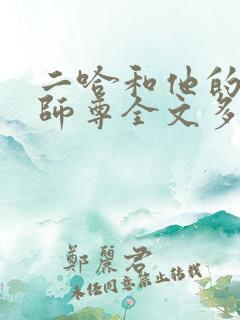 二哈和他的
師尊全文多
鄭麗君
未经同意禁止转载